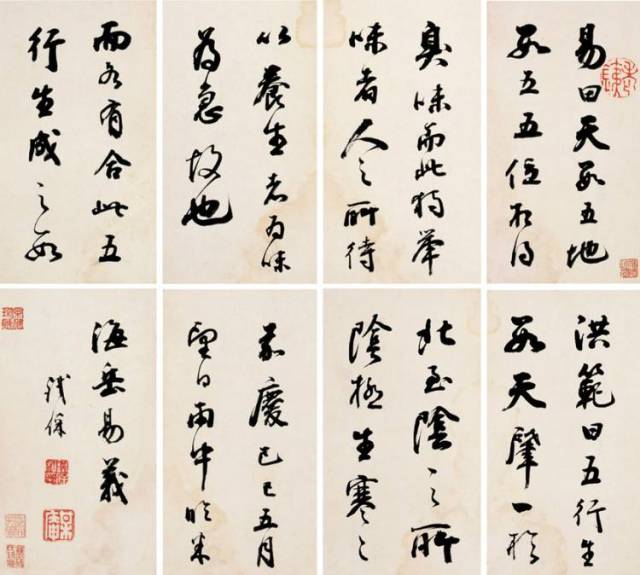 易曰天數五地
數五五位相得
臭味而此獨舉
味者人之所待
以養生者為味
為急故也
而各有合此五
行生成之數
洪範曰五行生
數天肇一於
北至陰之所
陰極生寒寒
嘉慶己巳五月
望日雨中臨米
海岳易義
鐵保